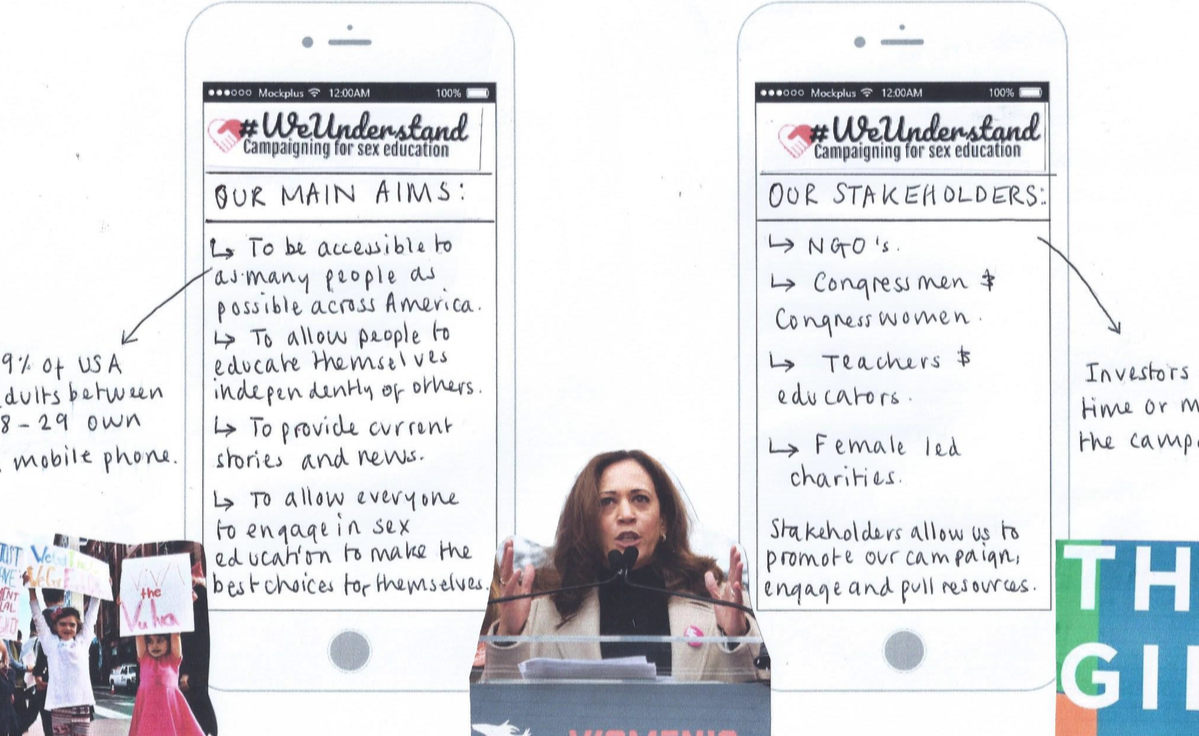 ●●●○○ Mockplus 12:00AM 100%
#WeUnderstand
Campaigning for sex education
OUR MAIN AIMS:
↳ To be accessible to
as many people as
possible across America.
↳ To allow people to
educate themselves
independently of others.
↳ To provide current
stories and news.
↳ To allow everyone
to engage in sex
education to make the
best choices for themselves.
9% of USA
dults between
8-29 own
mobile phone.
●●●○○ Mockplus 12:00AM 100%
#WeUnderstand
Campaigning for sex education
OUR STAKEHOLDERS:
↳ NGO's.
↳ Congressmen &
Congresswomen.
↳ Teachers &
educators.
↳ Female led
charities.
Stakeholders allow us to
promote our campaign,
engage and pull resources.
Investors
time or m
the camp
Viva
the
Vulva
TH
GI